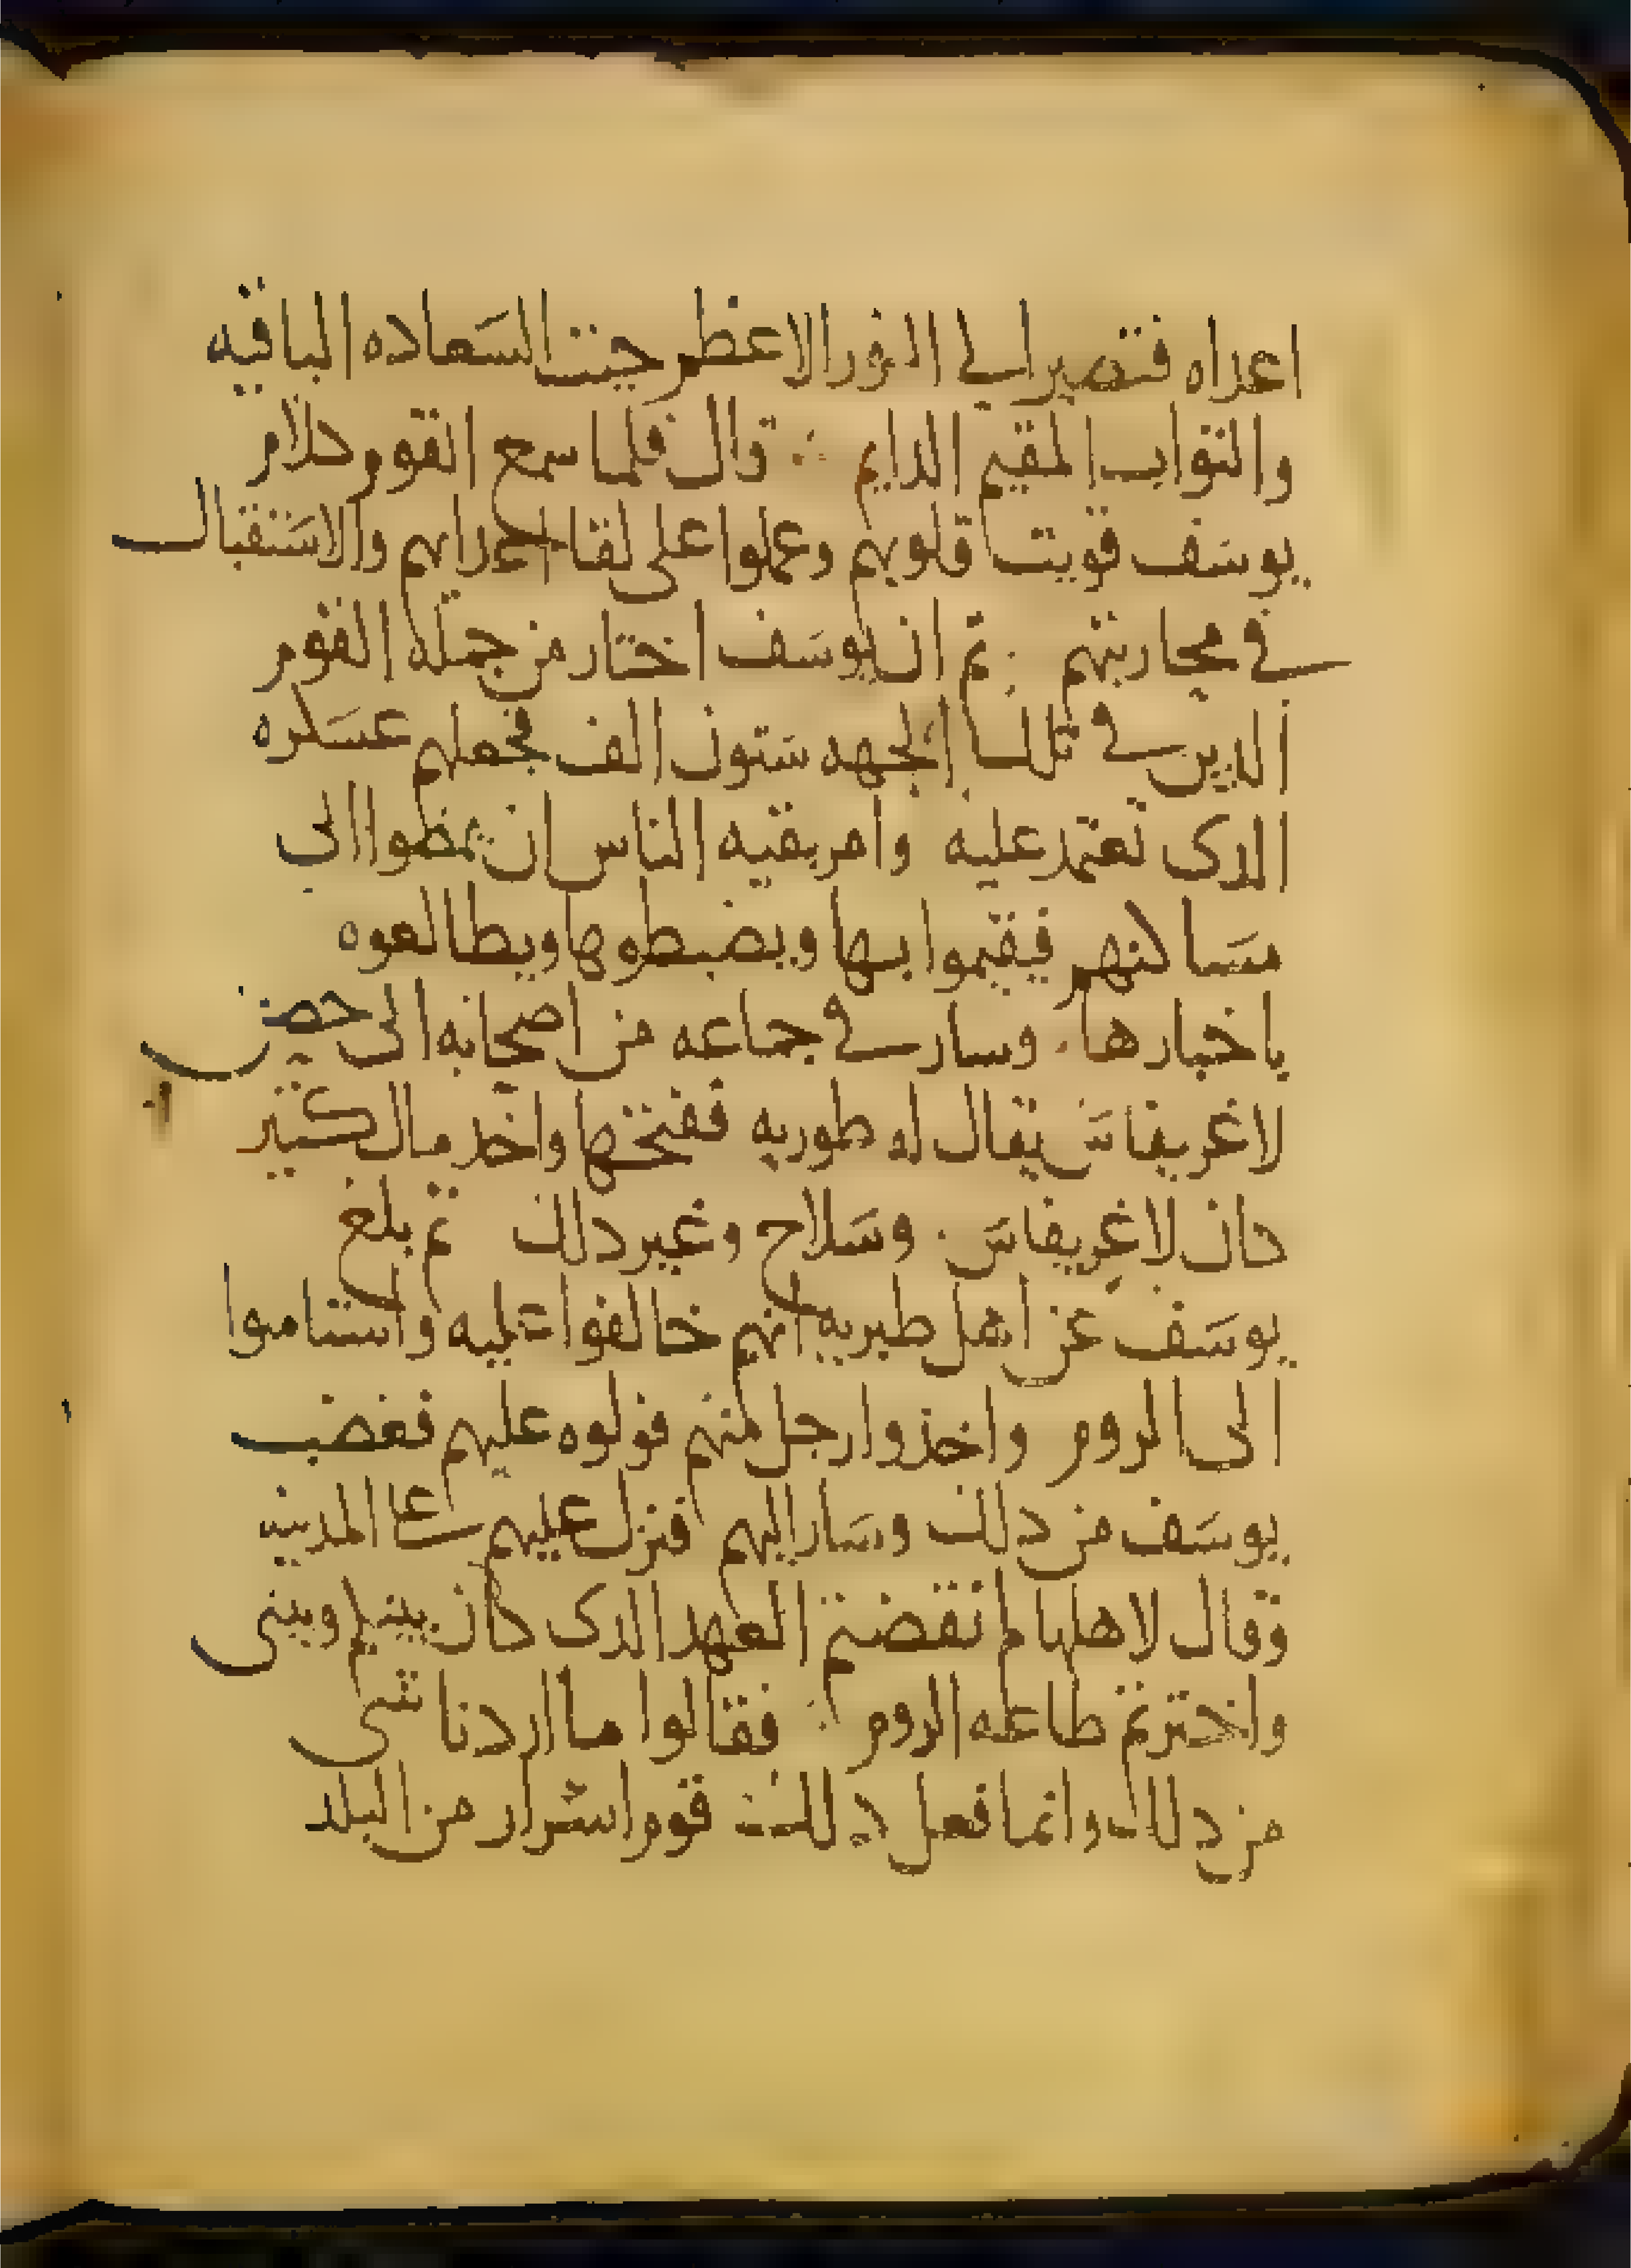 اعداه فتصير الى النور الاعظم حيث السعاده الباقيه
والثواب المقيم الدايم ∴ قال فلما سمع القوم كلام
يوسف قويت قلوبهم وعملوا على لقا اعدايهم والاستقبال
في محاربتهم . ثم ان يوسف اختار من جمله القوم
الدين في تلك الجهه ستون الف فجعلهم عسكره
الدى تعتمد عليه وامر بقيه الناس ان يمظوا الى
مساكنهم فيقيموا بها ويضبطوها ويطالعوه
باخبارها . وسار في جماعه من اصحابه الى حصن
لاغريفاس يقال له طوريه ففتحها واخد مال كثير
كان لاغريفاس . وسلاح وغير دلك ثم بلغ
يوسف عن اهل طبريه انهم خالفوا عليه واستاموا
الى الروم واخذوا رجل منهم فولوه عليهم فغضب
يوسف من دلك وسار اليهم فنزل عليهم على المدينه
وقال لاهلها لم نقضتم العهد الدى كان بينكم وبينى
واخترتم طاعه الروم ∴ فقالوا ما اردنا شى
من دلك وانما فعل دلك قوم اشرار من البلد